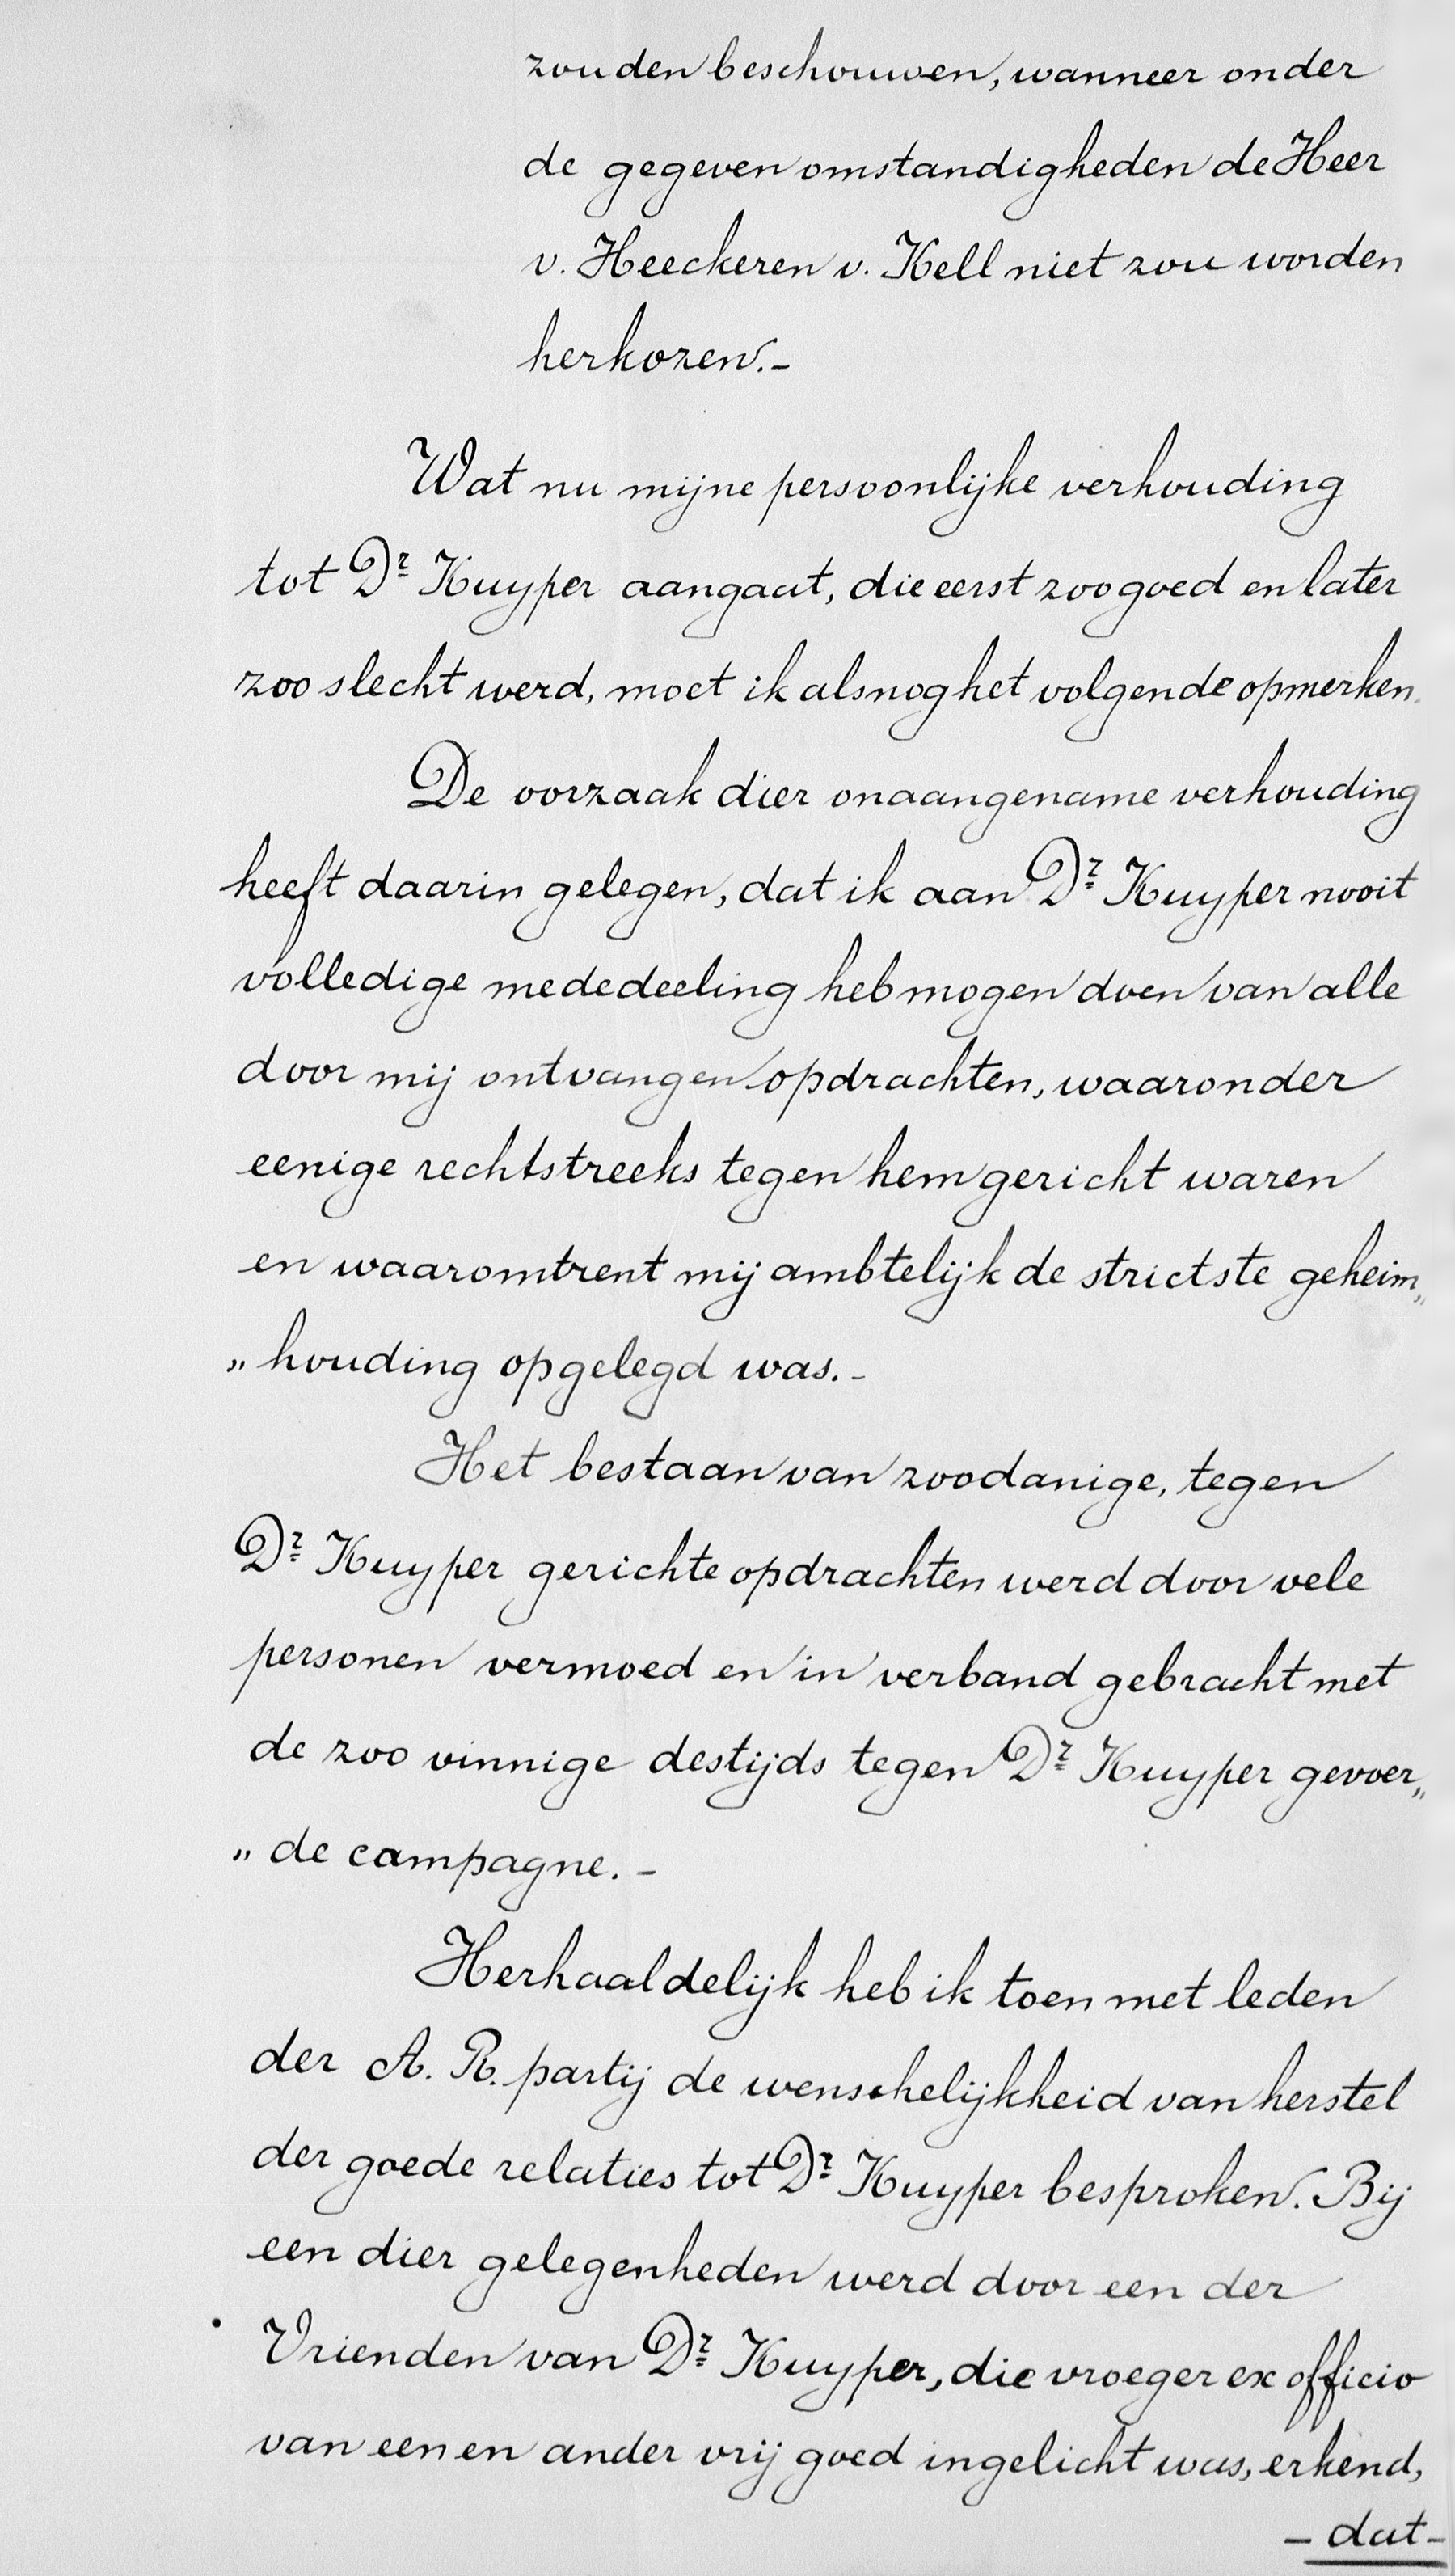 zouden beschouwen, wanneer onder
de gegeven omstandigheden de Heer
v. Heeckeren v. Kell niet zou worden
herkozen.-
Wat nu mijne persoonlijke verhouding
tot Dr Kuyper aangaat, die eerst zoo goed en later
zoo slecht werd, moet ik alsnog het volgende opmerken.
De oorzaak dier onaangename verhouding
heeft daarin gelegen, dat ik aan Dr Kuyper nooit
volledige mededeeling heb mogen doen van alle
door mij ontvangen opdrachten, waaronder
eenige rechtstreeks tegen hem gericht waren
en waaromtrent mij ambtelijk de strictste geheim„
„houding opgelegd was.-
Het bestaan van zoodanige, tegen
Dr Kuyper gerichte opdrachten werd door vele
personen vermoed en in verband gebracht met
de zoo vinnige destijds tegen Dr Kuyper gevoer„
„de campagne.-
Herhaaldelijk heb ik toen met leden
der A. R. partij de wenschelijkheid van herstel
der goede relaties tot Dr Kuyper besproken. Bij
een dier gelegenheden werd door een der
Vrienden van Dr Kuyper, die vroeger ex officio
van een en ander vrij goed ingelicht was, erkend,
- dat -